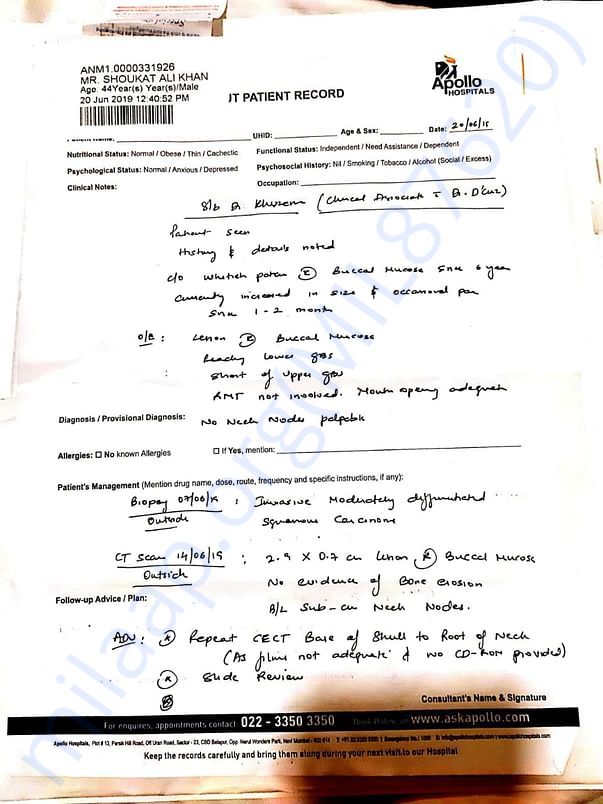 ANM1.0000331926
MR. SHOUKAT ALI KHAN
Age 44Year(s) Year(s)/Male
20 Jun 2019 12:40:52 PM
JT PATIENT RECORD
Apollo
HOSPITALS
UHID: Age & Sex: Date: 20/06/19
Nutritional Status: Normal / Obese / Thin / Cachectic
Functional Status: Independent / Need Assistance / Dependent
Psychological Status: Normal / Anxious / Depressed
Psychosocial History: Nil / Smoking / Tobacco / Alcohol (Social / Excess)
Clinical Notes:
Occupation:
S/b Dr. Khuzema (Clinical Associate Dr. D'Cruz)
Patient seen
History & details noted
c/o Whitish patch (R) Buccal Mucosa since 6 year
currently increased in size & occasional pain
since 1-2 month
O/E: Lesion (R) Buccal Mucosa
Reaching lower GBS
Short of upper GBS
RMT not involved. Mouth opening adequate
Diagnosis / Provisional Diagnosis:
No Neck Nodes palpable
Allergies: No known Allergies If Yes, mention:
Patient's Management (Mention drug name, dose, route, frequency and specific instructions, if any):
Biopsy 07/06/19 : Invasive Moderately differentiated
Outside Squamous Carcinoma
CT Scan 14/06/19 : 2.9 X 0.7 cm lesion (R) Buccal Mucosa
Outside No evidence of Bone erosion
Follow-up Advice / Plan:
B/L Sub-cm Neck Nodes.
Adv: Repeat CECT Base of Skull to Root of Neck
(As films not adequate & no CD-ROM provided)
Slide Review
Consultant's Name & Signature
For enquires, appointments contact: 022 - 3350 3350 www.askapollo.com
Apollo Hospitals, Plot # 13, Parsik Hill Road, Off Uran Road, Sector - 23, CBD Belapur, Opp. Nerul Wonders Park, Navi Mumbai
Keep the records carefully and bring them along during your next visit to our Hospital
milaap.org(MIL87620)